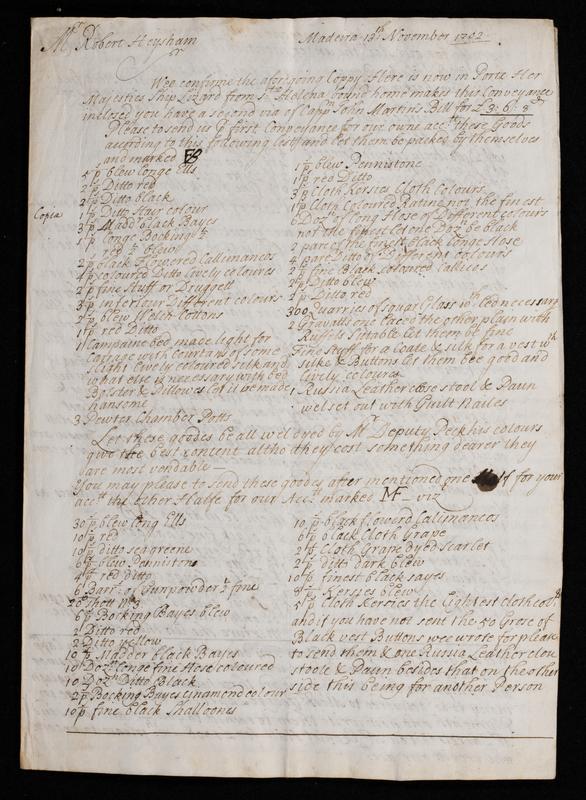 Mr Robert Heysham
Madeira 13th November 1702
Sr
Wee confirme the afore going Coppy Here is now in Porte Her
Majesties Ship Lizard from St Helena bound home makes this Conveyance
inclosed you have a second via of Capn John Martins Bill for £3:6:8
Please to send us first Conveyance for our owne acctt these Goods
according to this following list and let them be packed by themselves
and marked
5 ps blew Longe Ells
2 ps Ditto red
2 ps Ditto black
Copia
1 ps Ditto Hair colour
3 ps Madd black Bayes
1 ps Longe Bocking ½
red ½ blew
2 ps black Flowered Callimancos
4 ps coloured Ditto Lovely coloures
2 ps fine Stuff or Druggett
3 ps inferiour Different colours
2 ps blew Molth Cottons
1 ps red Ditto
1 Campaine bed made light for
Cariage with Courtaws of some
slight Lively coloured silk and
what else is necessary with bed
Bolster & Pillowes let it be made
hansome
3 Pewter Chamber Potts
1 ps blew Pennistone
1 ps red Ditto
3 ps Cloth Kersies Cloth Colours
1 ps Cloth Coloured Ratine not the finest
6 Dozn of Long Hose of Different colours
not the finest let one Dozn be black
2 pare of the finest black Longe Hose
4 pare Ditto of Different colours
2 ps fine Black coloured Callicos
2 ps Ditto blew
2 ps Ditto red
300 Quarries of quar Glass wth Led necessary
2 Gravatts one Laced the other plain with
Ruffels sutable let them be fine
Fine Stuff for a Coate & silk for a vest wth
silke & Buttons let them bee good and
Lively coloures
1 Russia Leather close stool & Paun
wel set out with Guilt Nailes
Let these goodes be all wel dyed by Mr Deputy Peck his colours
give the best content altho they cost something dearer they
are most vendable
You may please to send these goods after mentioned one Half for your
acctt the other Halfe for our Acctt marked MF viz
30 ps blew long Ells
10 ps red
10 ps ditto seagreene
6 ps blew Pennistons
4 ps red ditto
6 Barrs of Gunpowder ½ fine
Shott No 3
6 ps Bocking Bayes blew
2 Ditto red
2 Ditto yellow
10 ps Madder black Bayes
10 Dozn Longe fine Hose coloured
10 Dozn Ditto Black
2 ps Bocking Bayes cinamond colour
10 ps fine black Shalloones
10 ps black flowerd Calimancos
6 ps black Cloth Grape
2 ps Cloth Grape dyed scarlet
2 ps ditto dark blew
10 ps finest black sayes
Kersies blew
5 ps Cloth Kersies the Lightest cloth
and if you have not sent the 50 Grose of
Black vest Buttons wee wrote for please
to send them & one Russia Leather close
stoole & Paun besides that on the other
side this being for another Person